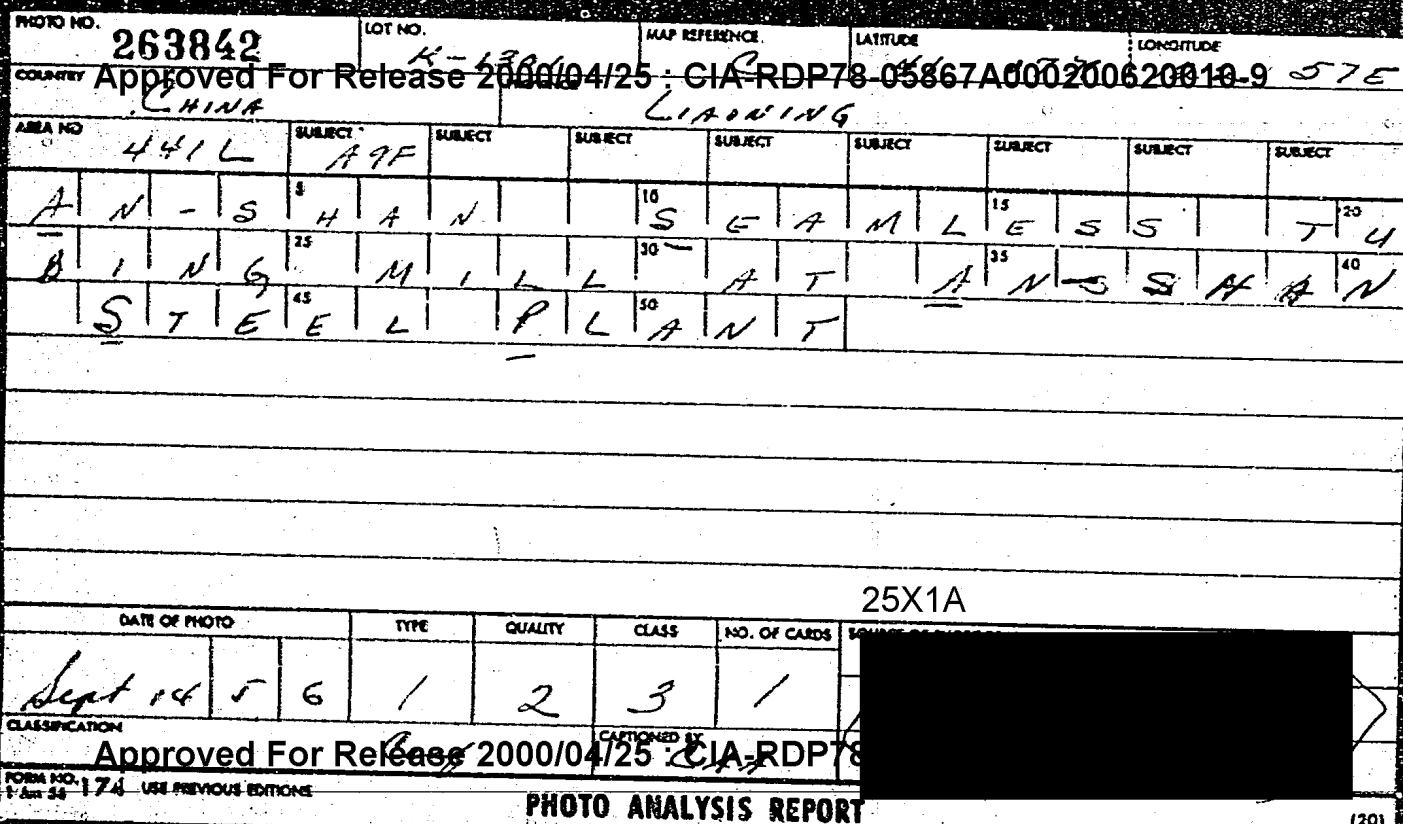 PHOTO NO. 263842 LOT NO. MAP REFERENCE C LATITUDE LONGITUDE 57E
COUNTRY Approved For Release 2000/04/25 : CIA-RDP78-05867A000200620010-9
CHINA LIAONING
AREA NO 441L SUBJECT A9F SUBJECT SUBJECT SUBJECT SUBJECT SUBJECT SUBJECT SUBJECT
AN-S 5 HAN 10 SEAML 15 ESS T 20 U
BING 25 MILL 30 AT A 35 N SHA 40 N
STE 45 EL PL 50 ANT
25X1A
DATE OF PHOTO TYPE QUALITY CLASS NO. OF CARDS
Sept 14 5 6 1 2 3 1
CLASSIFICATION CAPTIONED BY
Approved For Release 2000/04/25 : CIA-RDP78
FORM NO. 174 USE PREVIOUS EDITIONS
PHOTO ANALYSIS REPORT
(20)